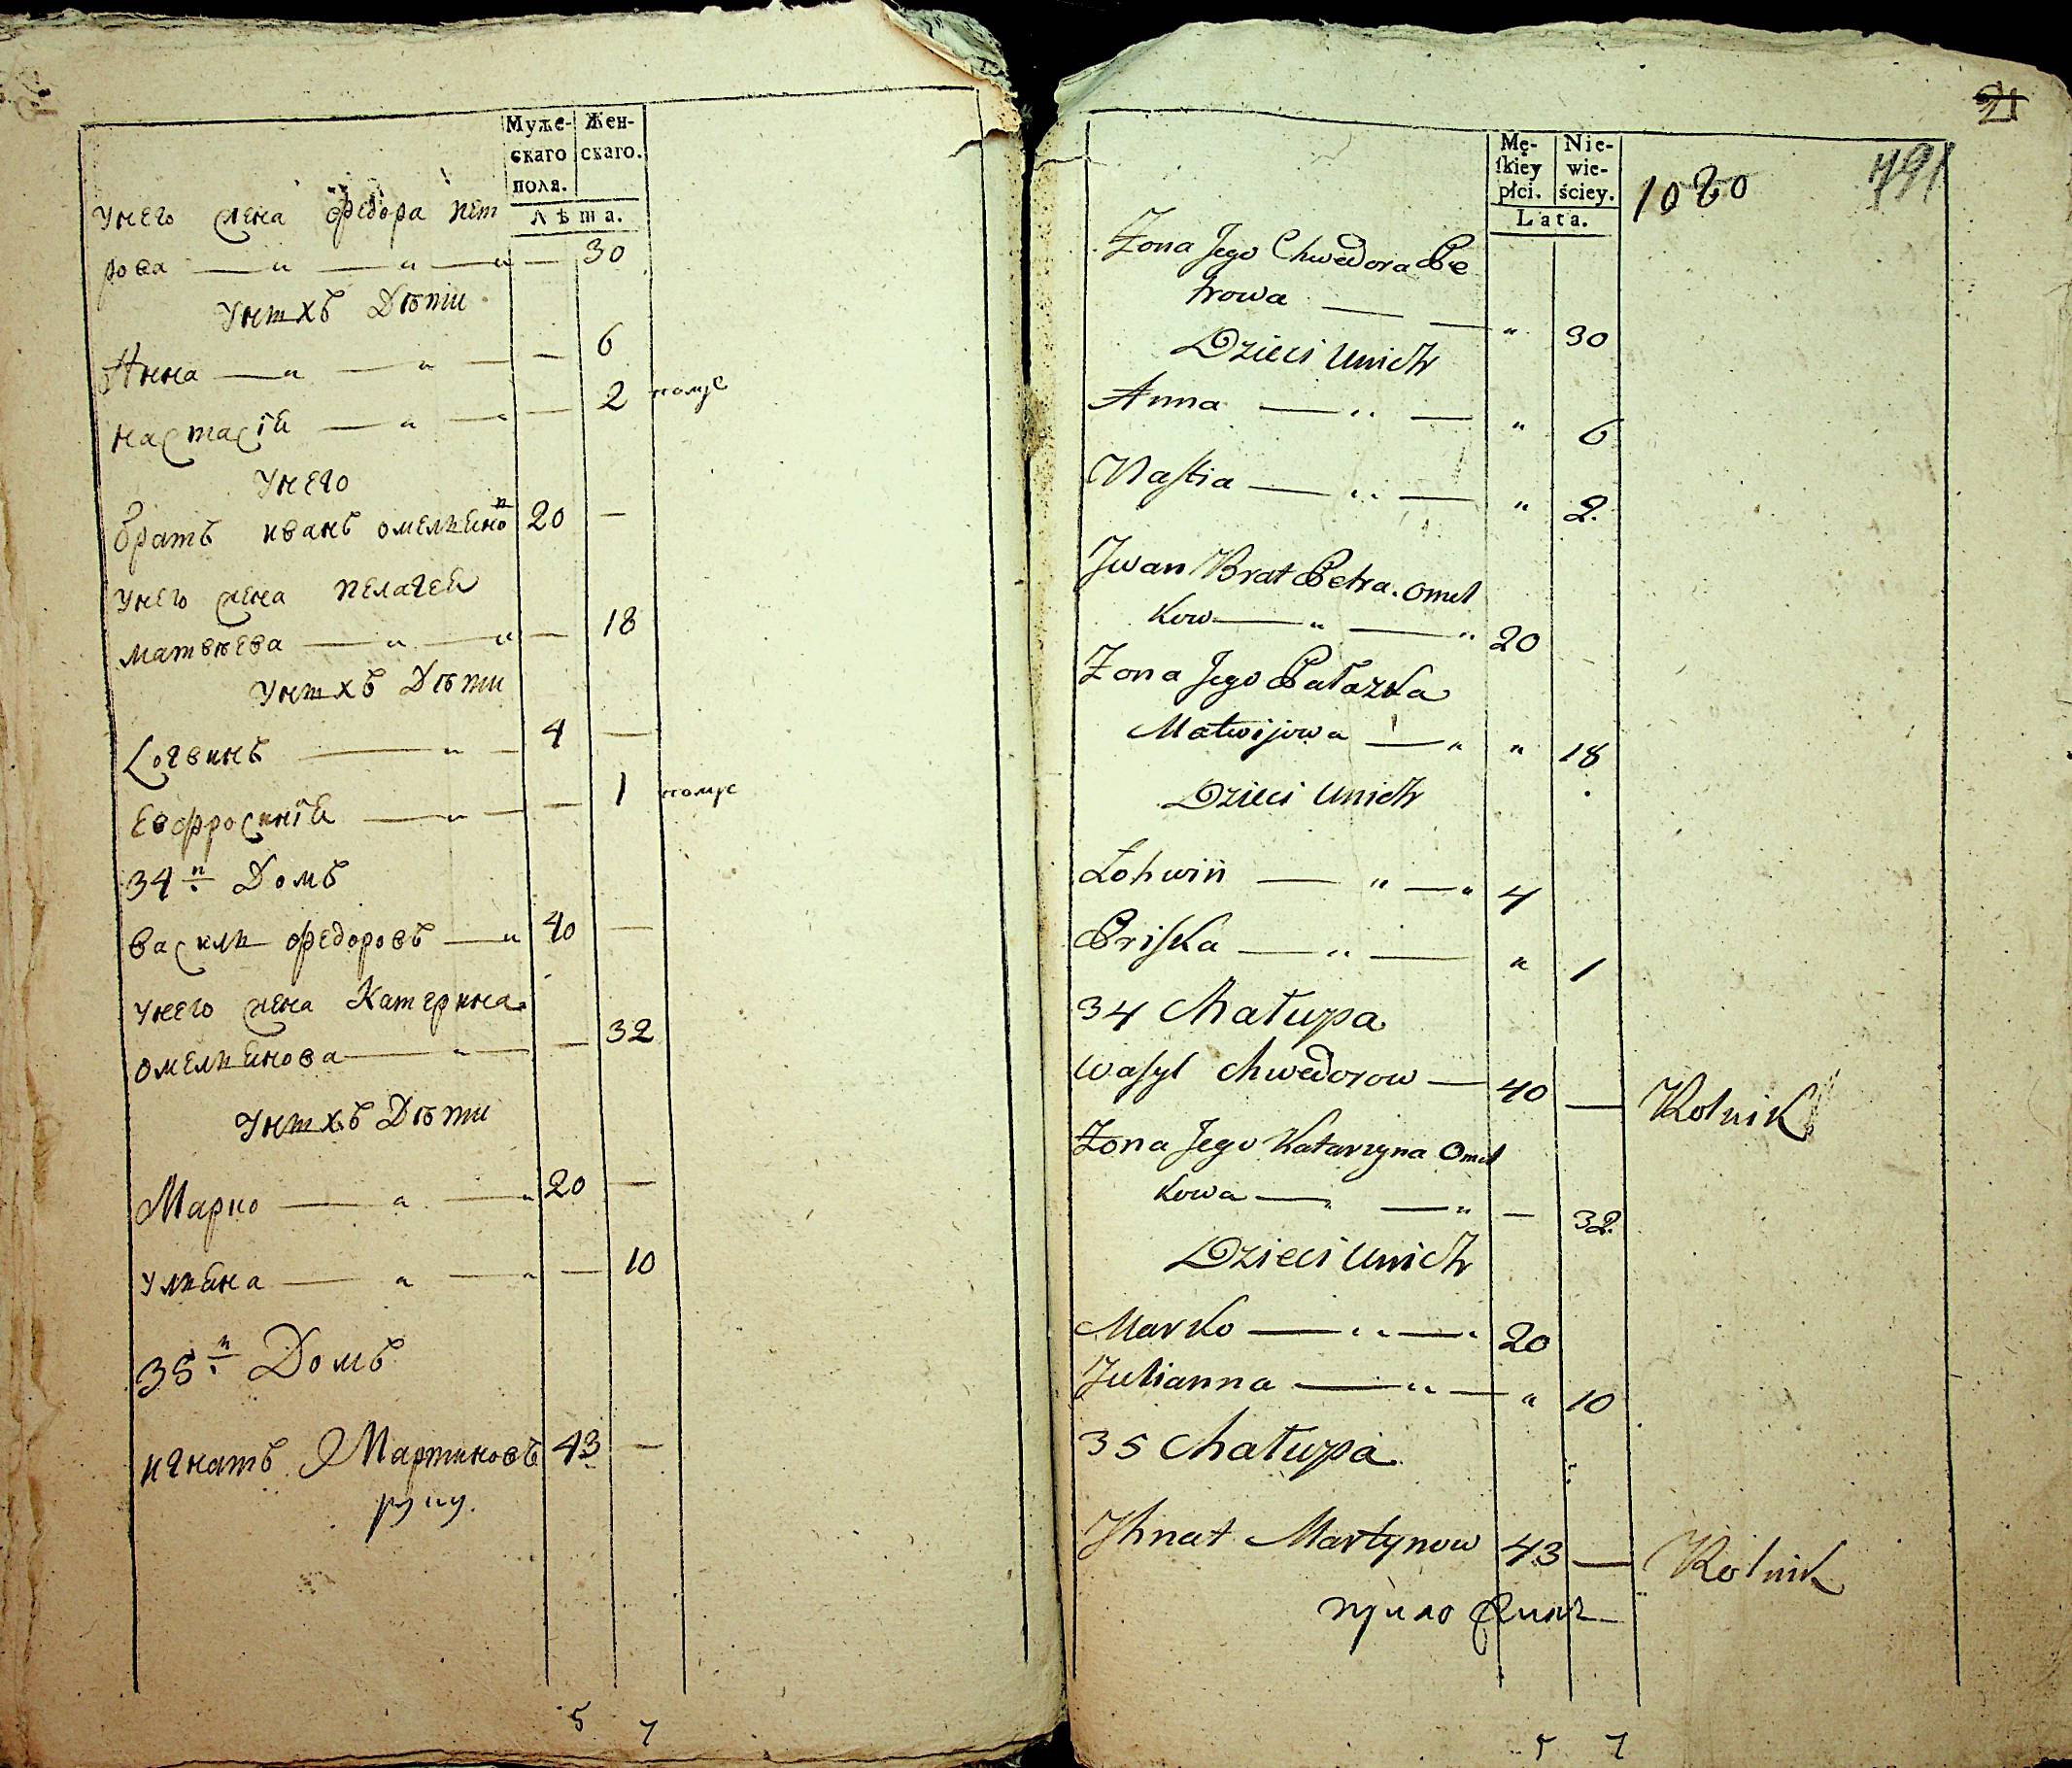 Муже-
скаго
пола.
Жен-
скаго.
Лѣта.
унего жена федора пет
рова — " — " — " — 30
унихъ Дѣти
Анна — " — " — — 6
настасія — " — " — 2
унего
братъ иванъ омелянов 20 —
унего жена пелагея
матвѣева — " — " — 18
унихъ Дѣти
Логвинъ — " — 4 —
Евфросинія — " — — 1
34й Домъ
васили федоровъ — " 40 —
унего жена Катерина
омелянова — " — — 32
унихъ Дѣти
Марко — " — " 20 —
уляна — " — " — 10
35й Домъ
игнатъ Мартиновъ 43 —
руку.
5 7
21
Mę-
ſkiey
płci.
Nie-
wie-
ściey.
Lata.
1080
791
Żona Jego Chwedora Pe
trowa — — " 30
Dzieci Unich
Anna — " — " 6
Naſtia — " — " 2
Jwan Brat Petra Omel
kow — " — " 20
Żona Jego Pałazka
Matwijowa — " " 18
Dzieci Unich
Łohwin — " — " 4
Priſka — " — " 1
34 Chałupa
Waſyl Chwedorow — 40 — Rolnik
Żona Jego Katarzyna Omel
kowa — " — " — 32
Dzieci Unich
Marko — " — " 20
Julianna — " — " 10
35 Chałupa
Jhnat Martynow 43 — Rolnik
5 7